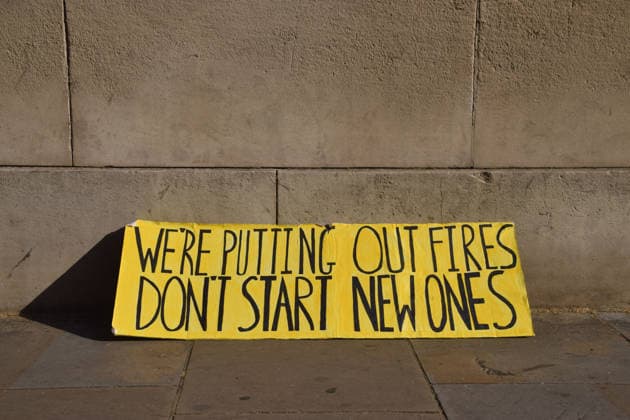 WE'RE PUTTING OUT FIRES
DON'T START NEW ONES